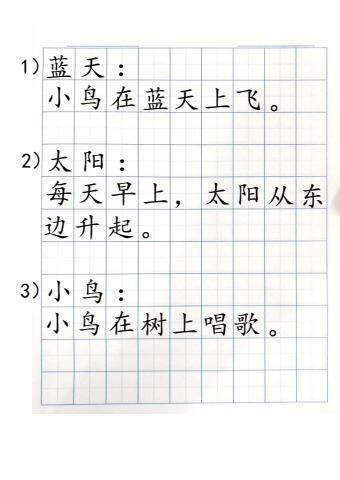 1)蓝天：
小鸟在蓝天上飞。
2)太阳：
每天早上，太阳从东
边升起。
3)小鸟：
小鸟在树上唱歌。